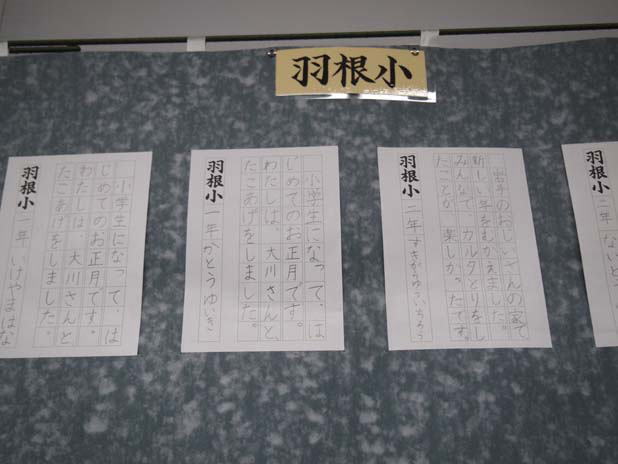 羽根小
羽根小 二年 ないと
岩手のおじいさんの家で
新しい年をむかえました。
みんなで、カルタとりをし
たことが、楽しかったです。
羽根小 二年
小学生になって、は
じめてのお正月です。
わたしは、大川さんと、
たこあげをしました。
羽根小 一年 かとうゆいき
小学生になって、は
じめてのお正月です。
わたしは、大川さんと
たこあげをしました。
羽根小 一年 いけやまはな